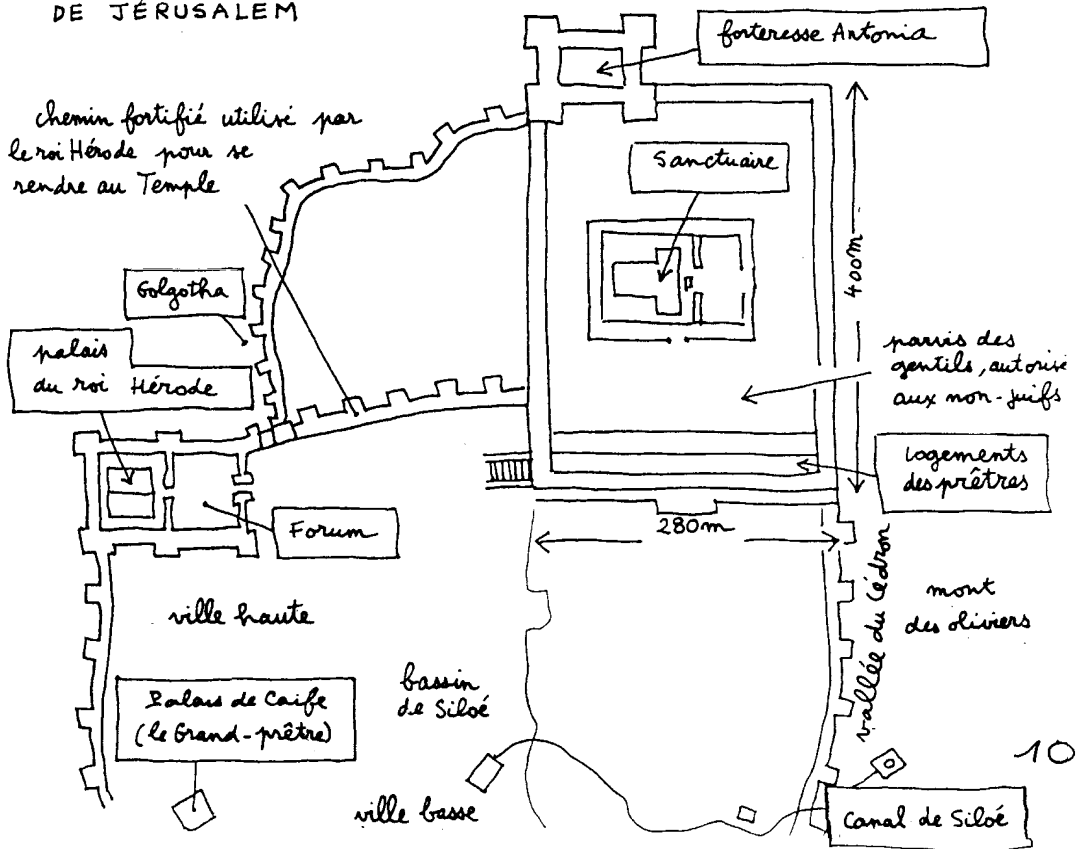 DE JÉRUSALEM
forteresse Antonia
chemin fortifié utilisé par
le roi Hérode pour se
rendre au Temple
Sanctuaire
400m
Golgotha
palais
du roi Hérode
parvis des
gentils, autorisé
aux non-juifs
Logements
des prêtres
Forum
280m
ville haute
vallée du Cédron
mont
des oliviers
bassin
de Siloé
Palais de Caïfe
(le Grand-prêtre)
10
ville basse
Canal de Siloé